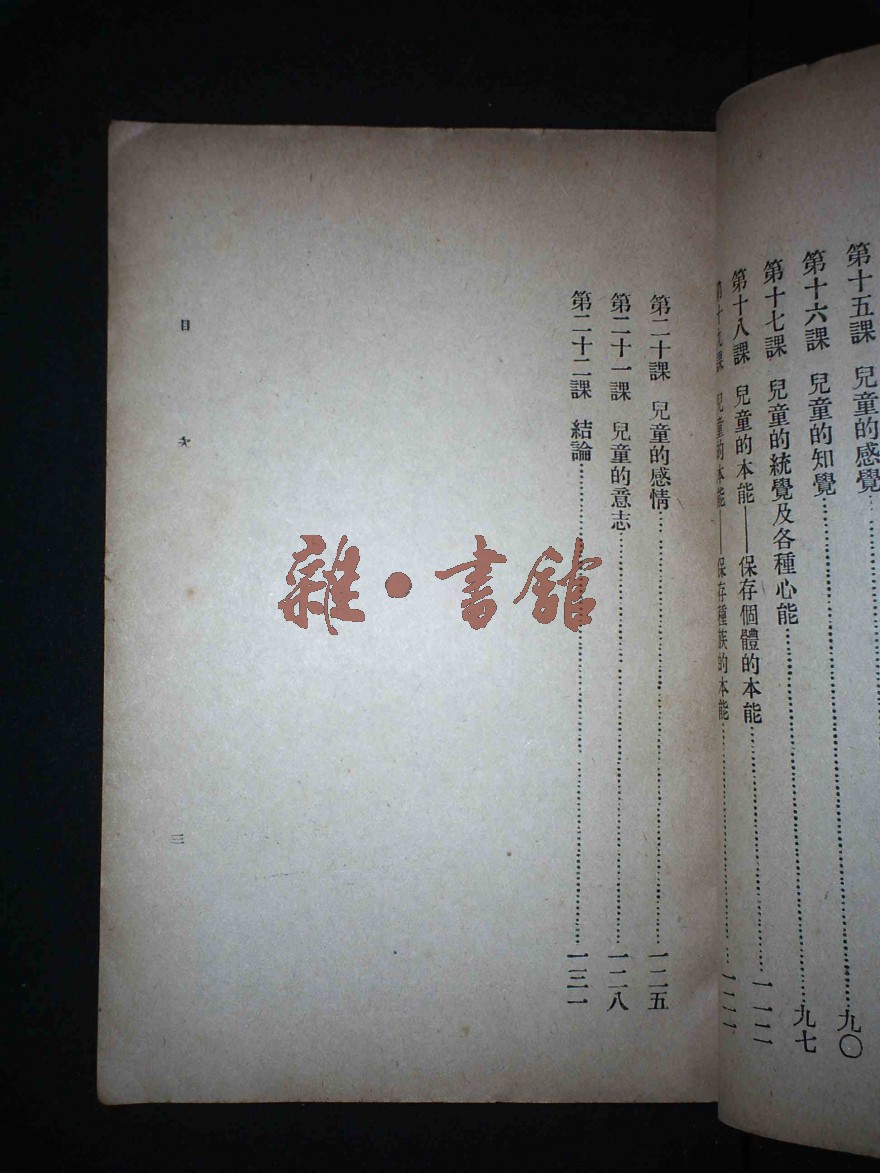 第十五課　兒童的感覺……
第十六課　兒童的知覺……九〇
第十七課　兒童的統覺及各種心能……九七
第十八課　兒童的本能——保存個體的本能……一一二
第十九課　兒童的本能——保存種族的本能……一二一
第二十課　兒童的感情……一二五
第二十一課　兒童的意志……一二八
第二十二課　結論……一三一
目次　三
雜·書館